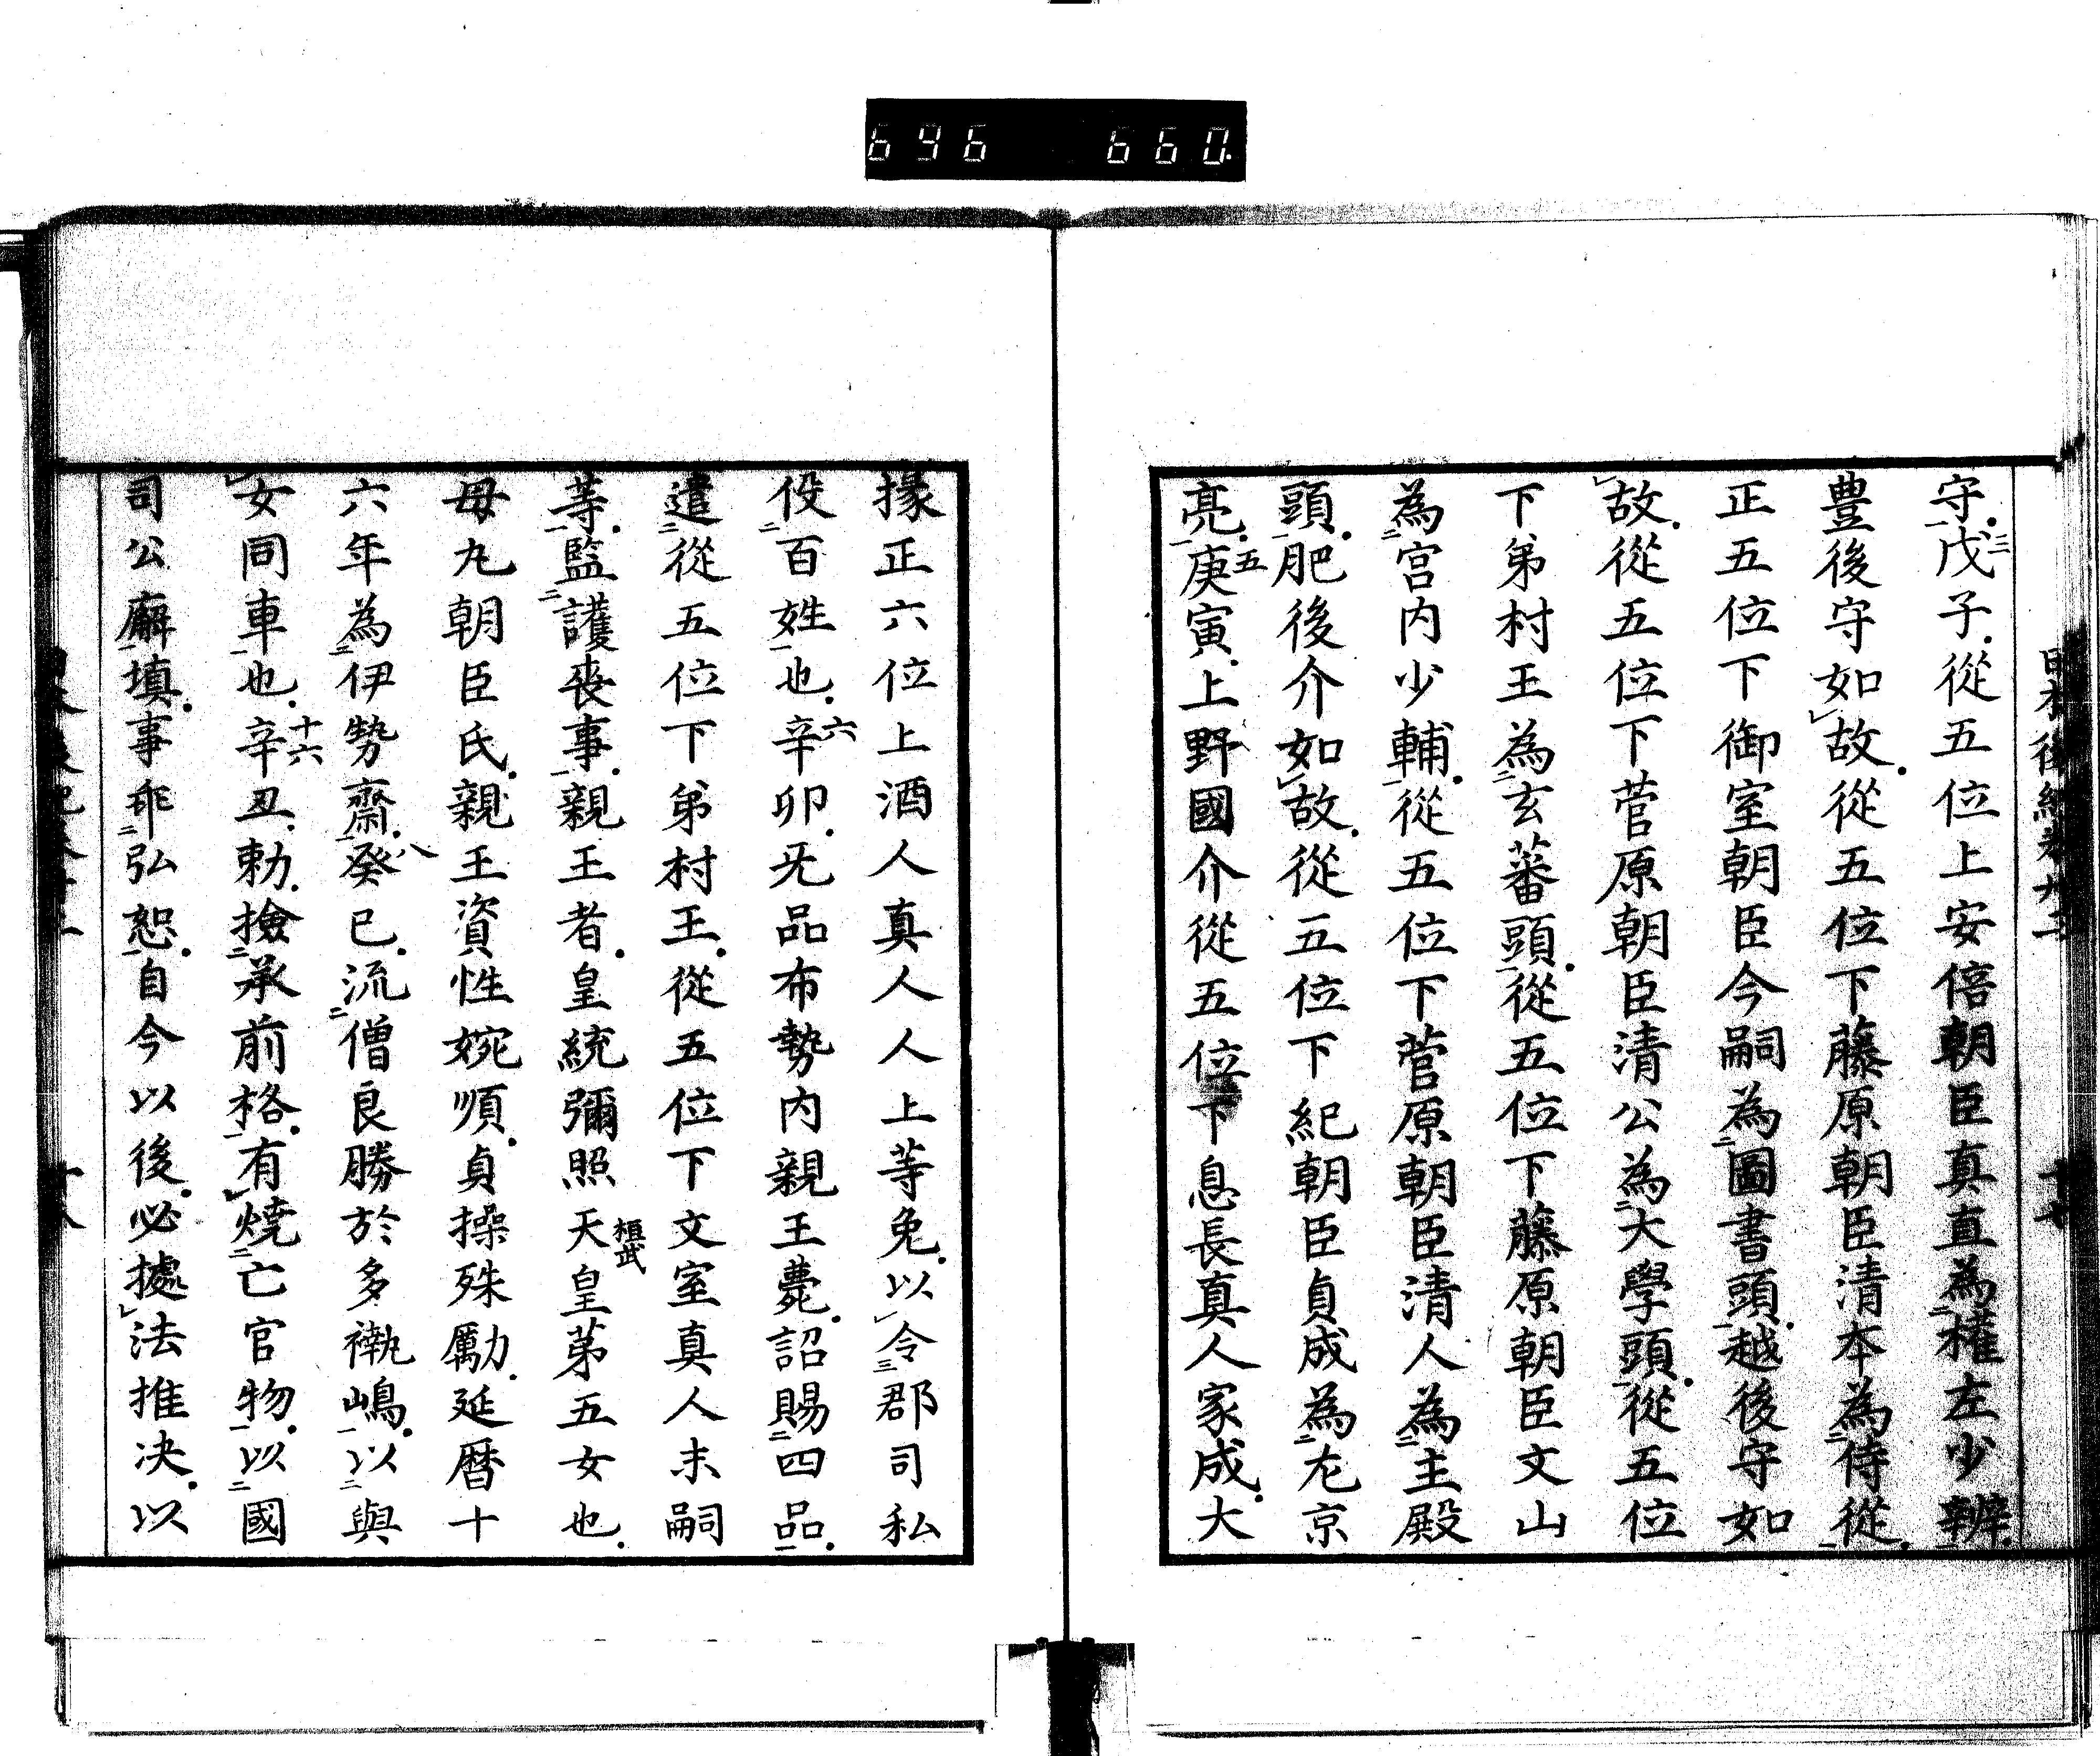 646 660.
守戊三子從五位上安倍朝臣真直為權左少辨
豊後守如故從五位下藤原朝臣清本為侍從
正五位下御室朝臣今嗣為圖書頭越後守如
故從五位下菅原朝臣清公為大學頭從五位
下苐村王為玄蕃頭從五位下藤原朝臣文山
為宮内少輔從五位下菅原朝臣清人為主殿
頭肥後介如故從五位下紀朝臣貞成為左京
亮庚五寅上野國介從五位下息長真人家成大
掾正六位上酒人真人人上等免以令郡司私
役百姓也辛六卯无品布勢内親王薨詔賜四品
遣從五位下苐村王從五位下文室真人末嗣
等監護喪事親王者皇統彌照天皇桓武苐五女也
母丸朝臣氏親王資性婉順貞操殊勵延暦十
六年為伊勢齋癸八巳流僧良勝於多褹嶋以與
女同車也辛十六丑勅撿承前格有焼亡官物以國
司公廨填事乖弘恕自今以後必據法推决以